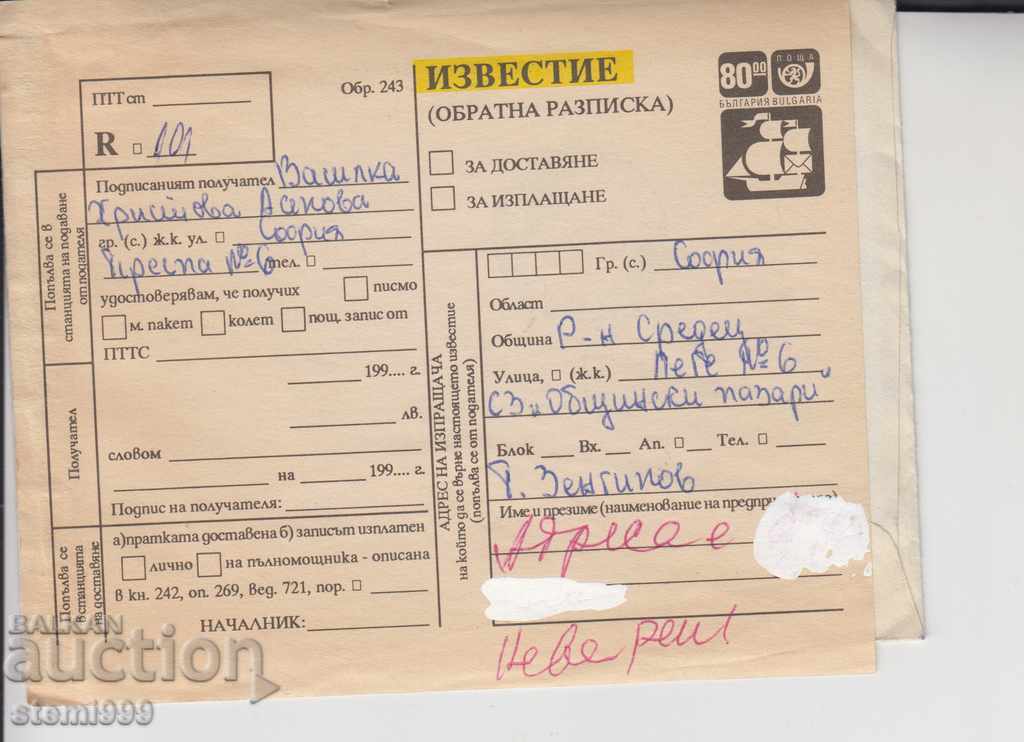 ПТТ ст
R 101
Обр. 243
Подписаният получател Василка
Христова Асенова
гр. (с.) ж.к. ул. София
Преспа №6 тел.
удостоверявам, че получих писмо
м. пакет колет пощ. запис от
ПТТС
199.... г.
лв.
словом
на 199.... г.
Подпис на получателя:
а)пратката доставена б) записът изплатен
лично на пълномощника - описана
в кн. 242, оп. 269, вед. 721, пор.
НАЧАЛНИК:
Попълва се в
станцията на подаване
от подателя
Получател
Попълва се
в станцията
на доставяне
ИЗВЕСТИЕ
(ОБРАТНА РАЗПИСКА)
ЗА ДОСТАВЯНЕ
ЗА ИЗПЛАЩАНЕ
80.00 ПОЩА
БЪЛГАРИЯ BULGARIA
АДРЕС НА ИЗПРАЩАЧА
на който да се върне настоящето известие
(попълва се от подателя)
Гр. (с.) София
Област
Община Р-н Средец
Улица, (ж.к.) Леге №6
СЗ "Общински пазари"
Блок Вх. Ап. Тел.
Име и презиме (наименование на
Адреса е
неверен
BALKAN
auction
stemi999